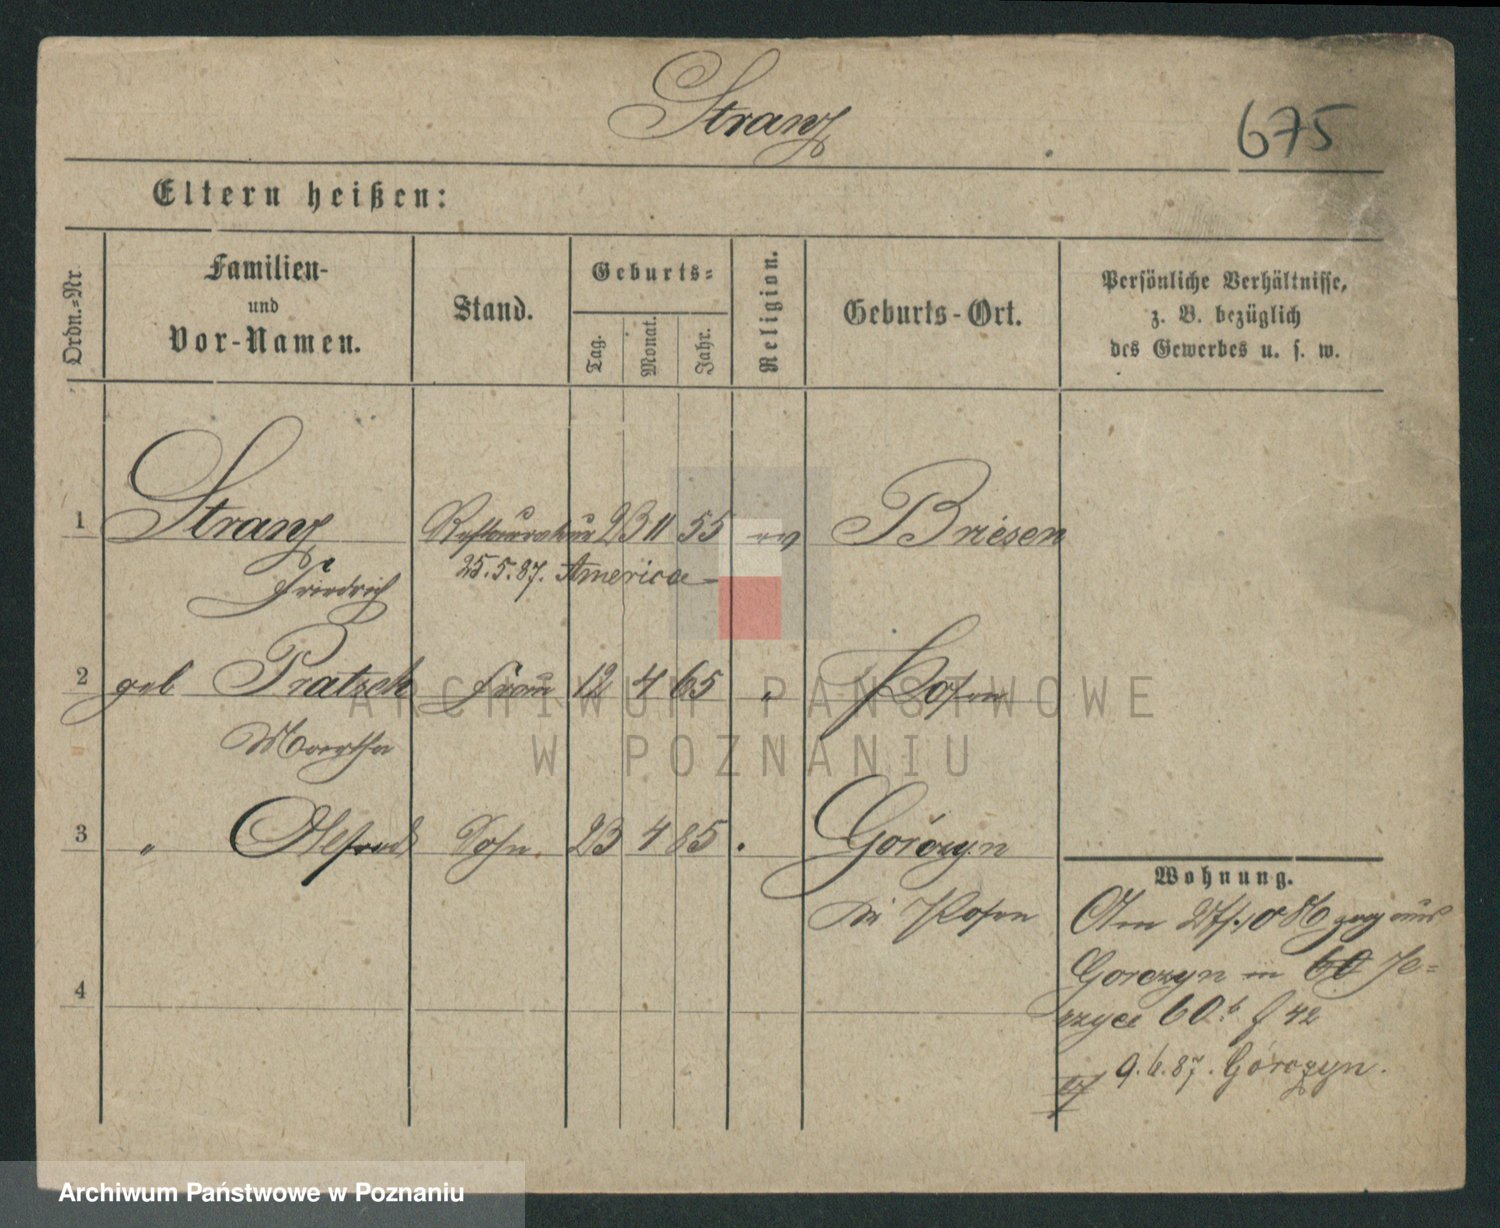 Stranz
675
Eltern heißen:
Ordn.-Nr.
Familien-
und
Vor-Namen.
Stand.
Geburts-
Tag.
Monat.
Jahr.
Religion.
Geburts-Ort.
Persönliche Verhältnisse,
z. B. bezüglich
des Gewerbes u. s. w.
1 Stranz Restaurateur 23 11 55 ev Briesen
Friedrich 25. 5. 87. America
2 geb Pratzek Frau 12 4 65 " Posen
Martha
3 " Alfred Sohn 23 4 85 Gorczyn
bei Posen
4
Wohnung.
Am 86 zog aus
Gorczyn in 60 Je=
rzyce 60b f 42
9. 6. 87. Górczyn.
ARCHIWUM PAŃSTWOWE
W POZNANIU
Archiwum Państwowe w Poznaniu